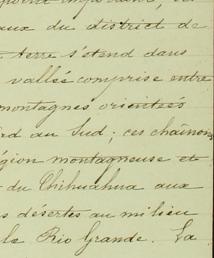 aux du district de
Terre s'étend dans
vallée comprise entre
montagnes orientées
rd au Sud ; ces chaînons
égion montagneuse et
du Chihuahua aux
s désertes au milieu
le Rio Grande. La